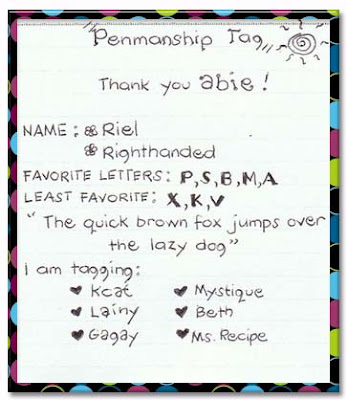 Penmanship Tag
Thank you abie!
NAME: Riel
Righthanded
FAVORITE LETTERS: P,S,B,M,A
LEAST FAVORITE: X,K,V
" The quick brown fox jumps over
the lazy dog"
I am tagging:
Kcat Mystique
Lainy Beth
Gagay Ms. Recipe